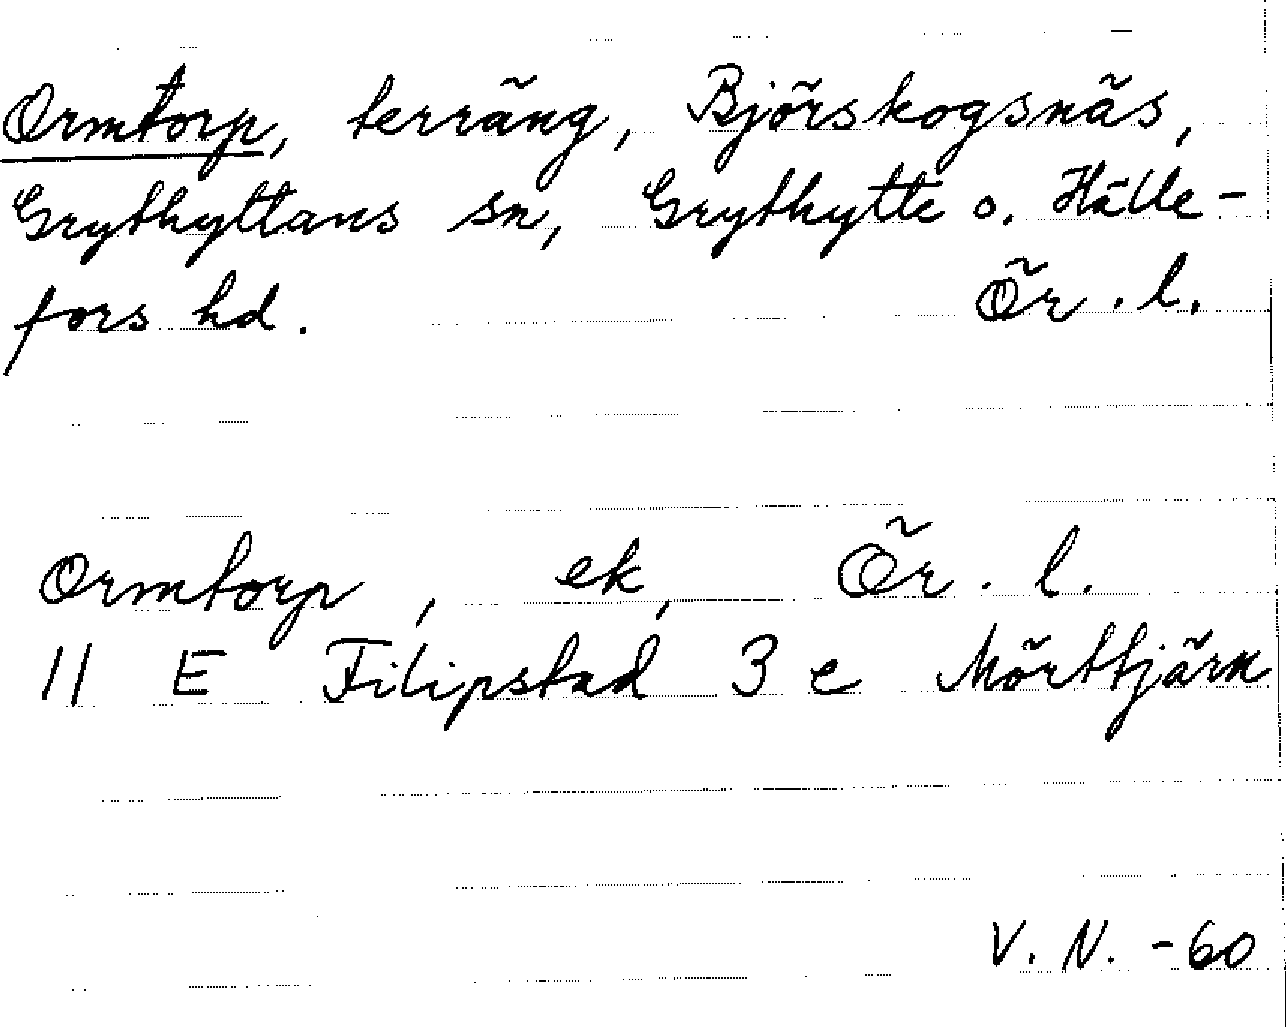 Ormtorp, terräng, Björskogsnäs,
Grythyttans sn, Grythytte o. Hälle-
fors hd. Ör. l.
Ormtorp, ek, Ör. l.
11 E Filipstad 3 e Mörttjärn
V. N. -60